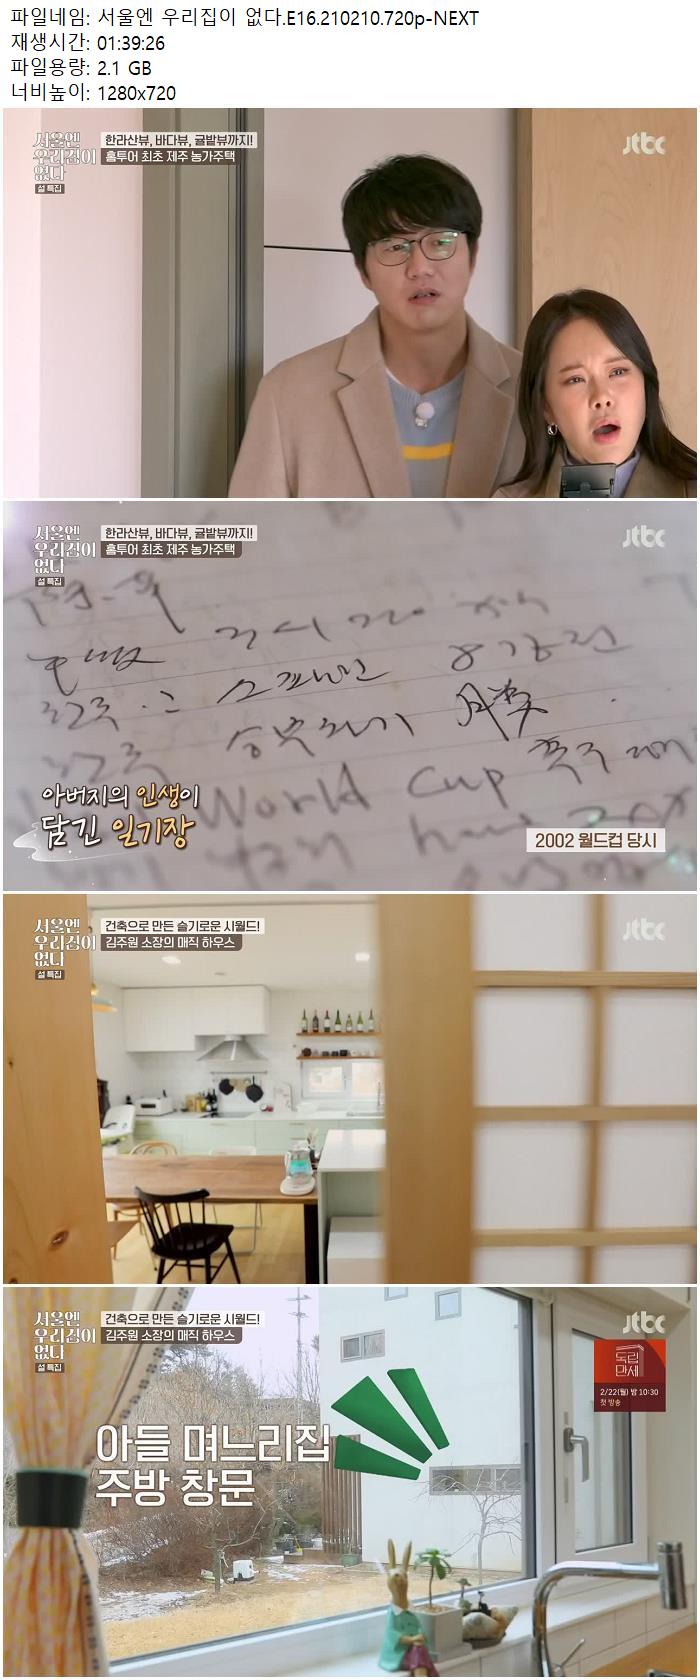 파일네임: 서울엔 우리집이 없다.E16.210210.720p-NEXT
재생시간: 01:39:26
파일용량: 2.1 GB
너비높이: 1280x720
서울엔
우리집이
없다
설 특집
한라산뷰, 바다뷰, 귤밭뷰까지!
홈투어 최초 제주 농가주택
jtbc
서울엔
우리집이
없다
설 특집
한라산뷰, 바다뷰, 귤밭뷰까지!
홈투어 최초 제주 농가주택
jtbc
스페인 8강전
한국 승부차기
World Cup
아버지의 인생이
담긴 일기장
2002 월드컵 당시
서울엔
우리집이
없다
설 특집
건축으로 만든 슬기로운 시월드!
김주원 소장의 매직 하우스
jtbc
서울엔
우리집이
없다
설 특집
건축으로 만든 슬기로운 시월드!
김주원 소장의 매직 하우스
jtbc
독립
만세
2/22(월) 밤 10:30
첫 방송
아들 며느리집
주방 창문